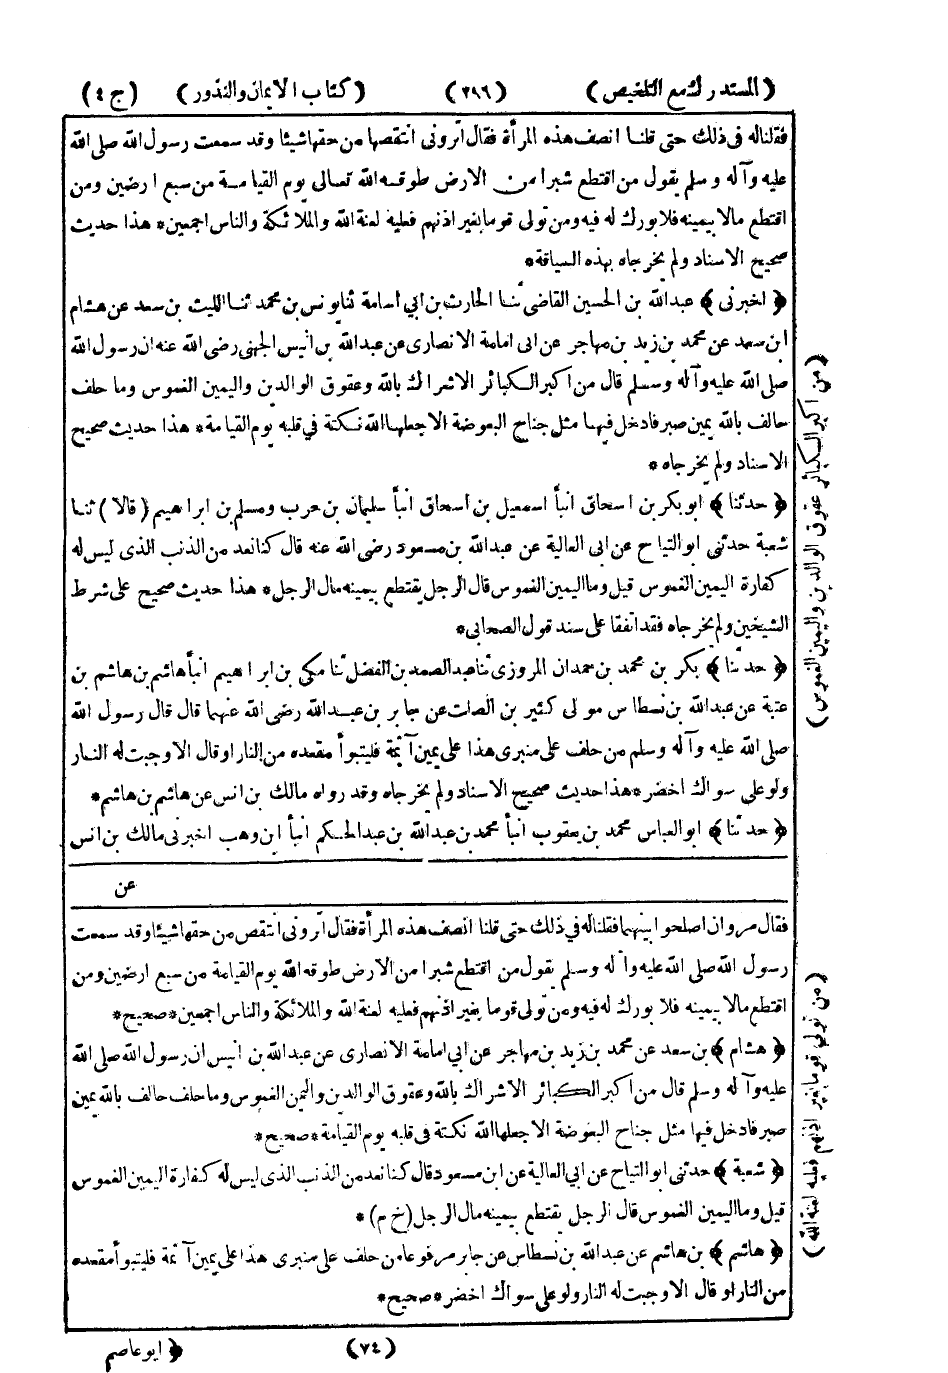 (المستدرك مع التلخيص) (٢٩٦) (كتاب الايمان والنذور) (ج ٤)
فقلنا له فى ذلك حتى قلنا انصف هذه المرأة فقال أترونى انتقصها من حقها شيئا وقد سمعت رسول الله صلى الله
عليه وآله وسلم يقول من اقتطع شبرا من الارض طوقه الله تعالى يوم القيامة من سبع ارضين ومن
اقتطع مالا بيمينه فلا بورك له فيه ومن تولى قوما بغير اذنهم فعليه لعنة الله والملائكة والناس اجمعين * هذا حديث
صحيح الاسناد ولم يخرجاه بهذه السياقة *
﴿ اخبرنى ﴾ عبدالله بن الحسين القاضى ثنا الحارث بن ابي اسامة ثنا يونس بن محمد ثنا الليث بن سعد عن هشام
ابن سعد عن محمد بن زيد بن مهاجر عن ابى امامة الانصارى عن عبدالله بن انيس الجهنى رضى الله عنه ان رسول الله
صلى الله عليه وآله وسلم قال من اكبر الكبائر الاشراك بالله وعقوق الوالدين واليمين الغموس وما حلف
حالف بالله يمين صبر فادخل فيها مثل جناح البعوضة الا جعلها الله نكتة في قلبه يوم القيامة * هذا حديث صحيح
الاسناد ولم يخرجاه *
﴿ حدثنا ﴾ ابوبكر بن اسحاق انبأ اسمعيل بن اسحاق انبأ سليمان بن حرب ومسلم بن ابراهيم (قالا) ثنا
شعبة حدثنى ابو التياح عن ابى العالية عن عبدالله بن مسعود رضى الله عنه قال كنا نعد من الذنب الذى ليس له
كفارة اليمين الغموس قيل وما اليمين الغموس قال الرجل يقتطع بيمينه مال الرجل * هذا حديث صحيح على شرط
الشيخين ولم يخرجاه فقد اتفقا على سند قول الصحابى *
﴿ حدثنا ﴾ بكر بن محمد بن حمدان المروزى ثنا عبدالصمد بن الفضل ثنا مكى بن ابراهيم انبأ هاشم بن هاشم بن
عتبة عن عبدالله بن نسطاس مولى كثير بن الصلت عن جابر بن عبدالله رضى الله عنهما قال قال رسول الله
صلى الله عليه وآله وسلم من حلف على منبرى هذا على يمين آثمة فليتبوأ مقعده من النار او قال الا وجبت له النار
ولو على سواك اخضر * هذا حديث صحيح الاسناد ولم يخرجاه وقد رواه مالك بن انس عن هاشم بن هاشم *
﴿ حدثنا ﴾ ابو العباس محمد بن يعقوب انبأ محمد بن عبدالله بن عبدالحكم انبأ ابن وهب اخبرنى مالك بن انس
عن
فقال مروان اصلحوا بينهما فقلنا له فى ذلك حتى قلنا انصف هذه المرأة فقال أترونى انتقص من حقها شيئا وقد سمعت
رسول الله صلى الله عليه وآله وسلم يقول من اقتطع شبرا من الارض طوقه الله يوم القيامة من سبع ارضين ومن
اقتطع مالا بيمينه فلا بورك له فيه ومن تولى قوما بغير اذنهم فعليه لعنة الله والملائكة والناس اجمعين * صحيح *
﴿ هشام ﴾ بن سعد عن محمد بن زيد بن مهاجر عن ابي امامة الانصارى عن عبدالله بن انيس ان رسول الله صلى الله
عليه وآله وسلم قال من اكبر الكبائر الاشراك بالله وعقوق الوالدين واليمن الغموس وما حلف حالف بالله يمين
صبر فادخل فيها مثل جناح البعوضة الا جعلها الله نكتة فى قلبه يوم القيامة * صحيح *
﴿ شعبة ﴾ حدثنى ابو التياح عن ابي العالية عن ابن مسعود قال كنا نعد من الذنب الذى ليس له كفارة اليمين الغموس
قيل وما اليمين الغموس قال الرجل يقتطع بيمينه مال الرجل (خ م) *
﴿ هاشم ﴾ بن هاشم عن عبدالله بن نسطاس عن جابر مرفوعا من حلف على منبرى هذا على يمين آثمة فليتبوأ مقعده
من النار او قال الا وجبت له النار ولو على سواك اخضر * صحيح *
(من اكبر الكبائر عقوق الوالدين واليمين الغموس)
(من تولى قوما بغير اذنهم فعليه لعنة الله)
(٧٤) ﴿ ابو عاصم